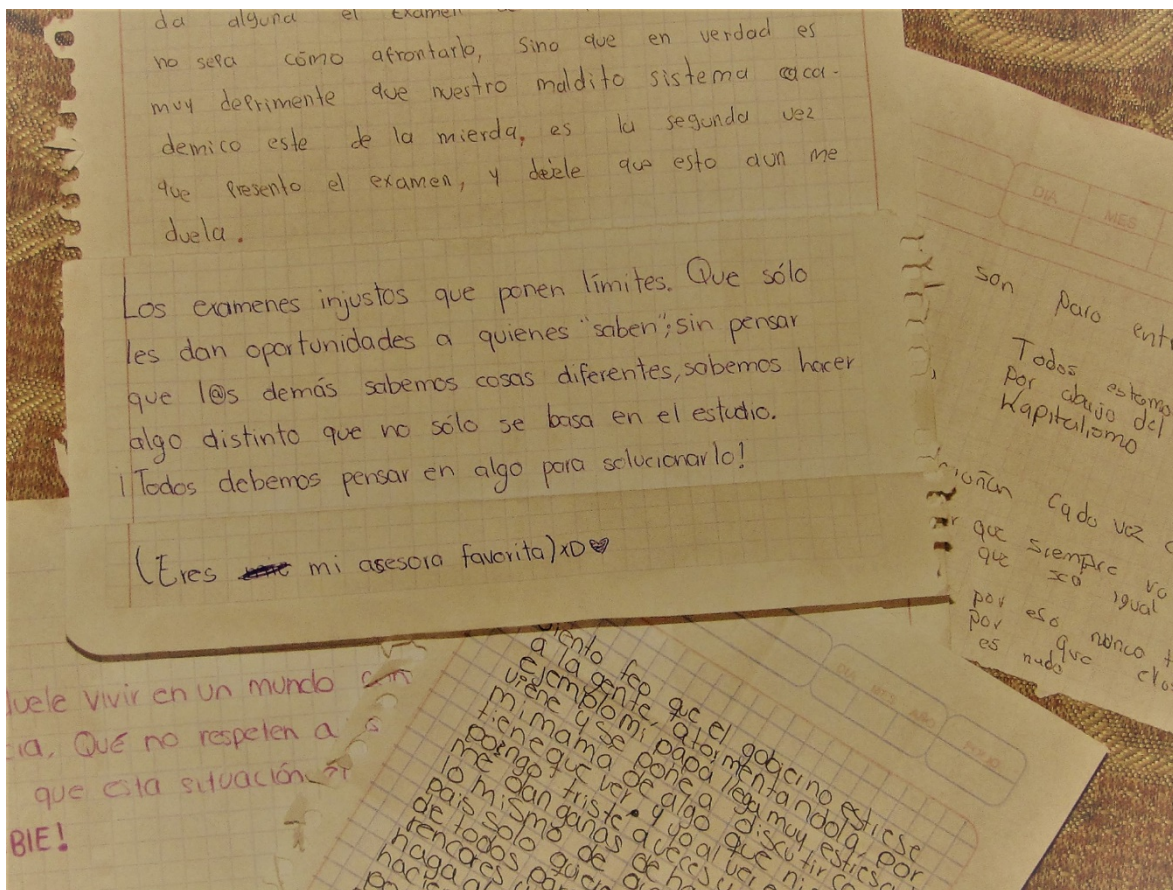 da alguna el examen
no sepa cómo afrontarlo, sino que en verdad es
muy deprimente que nuestro maldito sistema aca-
demico este de la mierda, es la segunda vez
que presento el examen, y que esto aun me
duela.
Los examenes injustos que ponen límites. Que sólo
les dan oportunidades a quienes "saben"; sin pensar
que l@s demás sabemos cosas diferentes, sabemos hacer
algo distinto que no sólo se basa en el estudio.
¡Todos debemos pensar en algo para solucionarlo!
(Eres mi asesora favorita) xD
DIA MES
son para
Todos estamos
por abajo del
Kapitalismo
cada vez
que siempre
que sea igual
por eso nunca
por que
es nada
vivir en un mundo
Que no respeten a
que esta situación
BIE!
DIA MES AÑO
FOLIO
feo que el gobierno estrese
a la gente, atormentandola, por
ejemplo mi papá llega muy
viene y se pone a discutir
mi mamá de algo que ni
tiene que ver y yo al
pongo triste a veces
me dan ganas de
lo mismo de
pais solo
de todos
haga